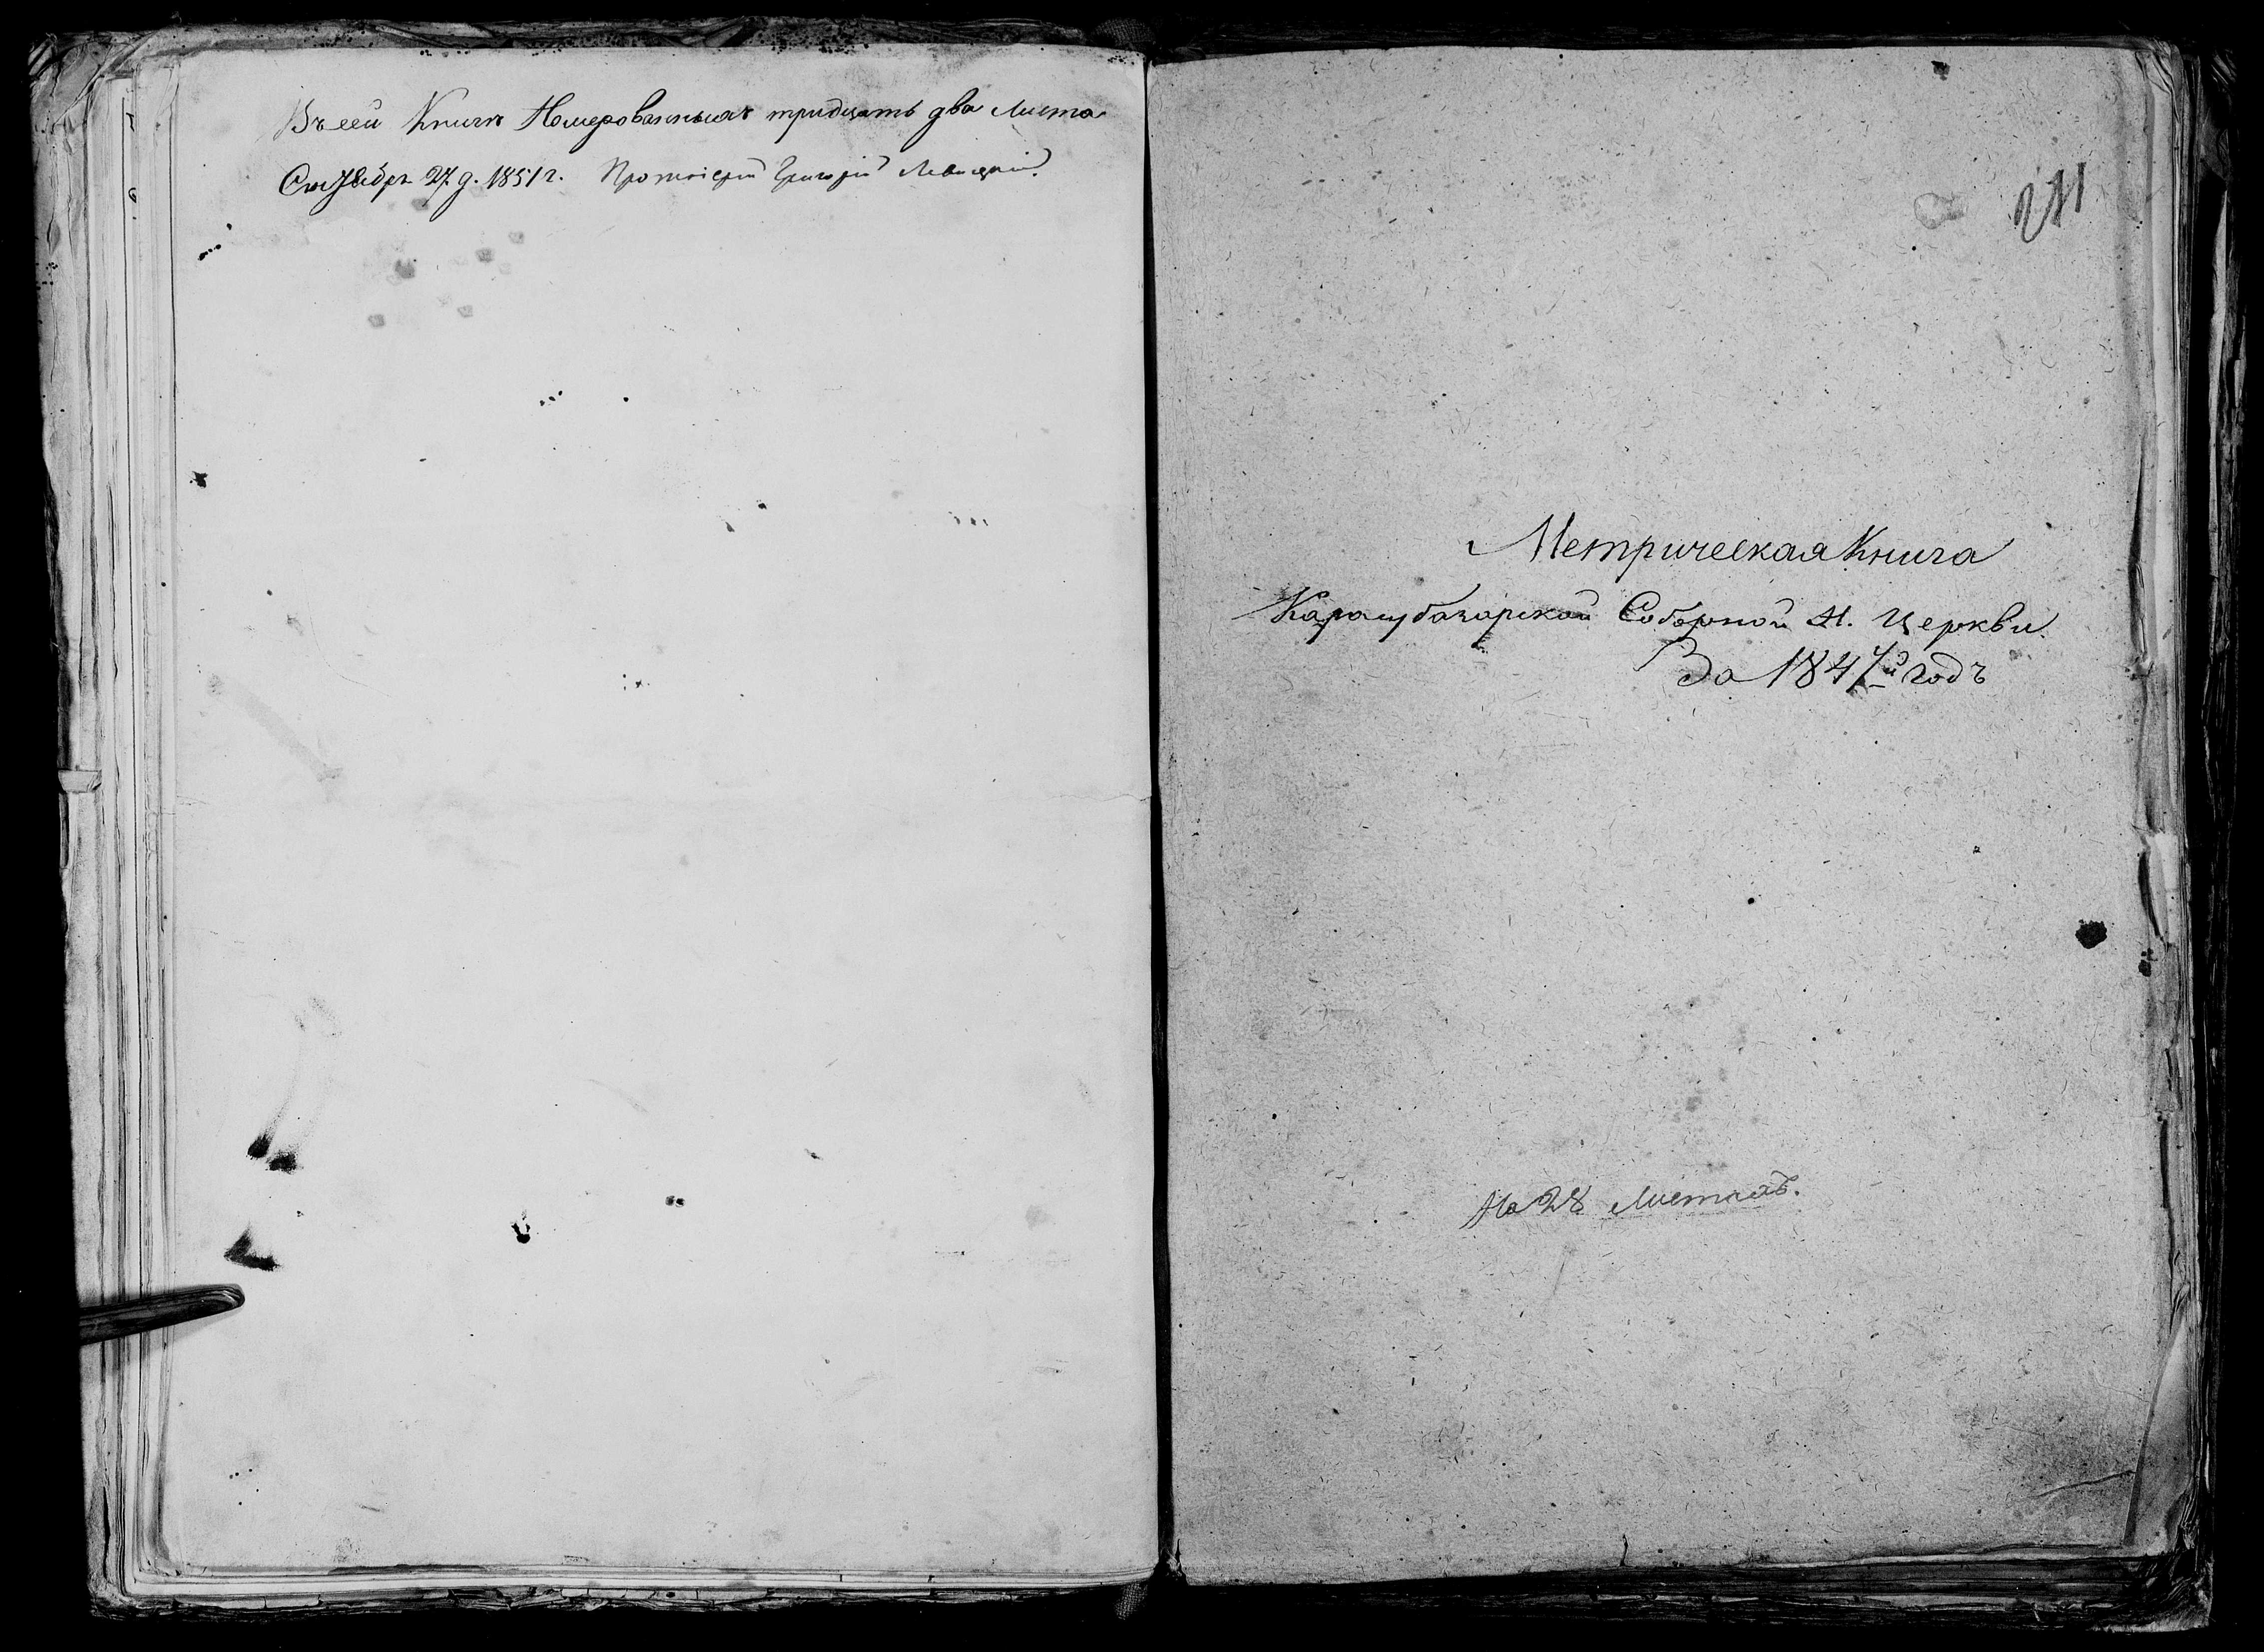 Въ сей Книгѣ Номерованныхъ тридцать два листа
Октября 27 д. 1851 г. Протоіерей Григорій Левицкій.
211
Метрическая Книга
Карасубазарской Соборной Н. Церкви.
За 1847й годъ
На 28 листахъ.